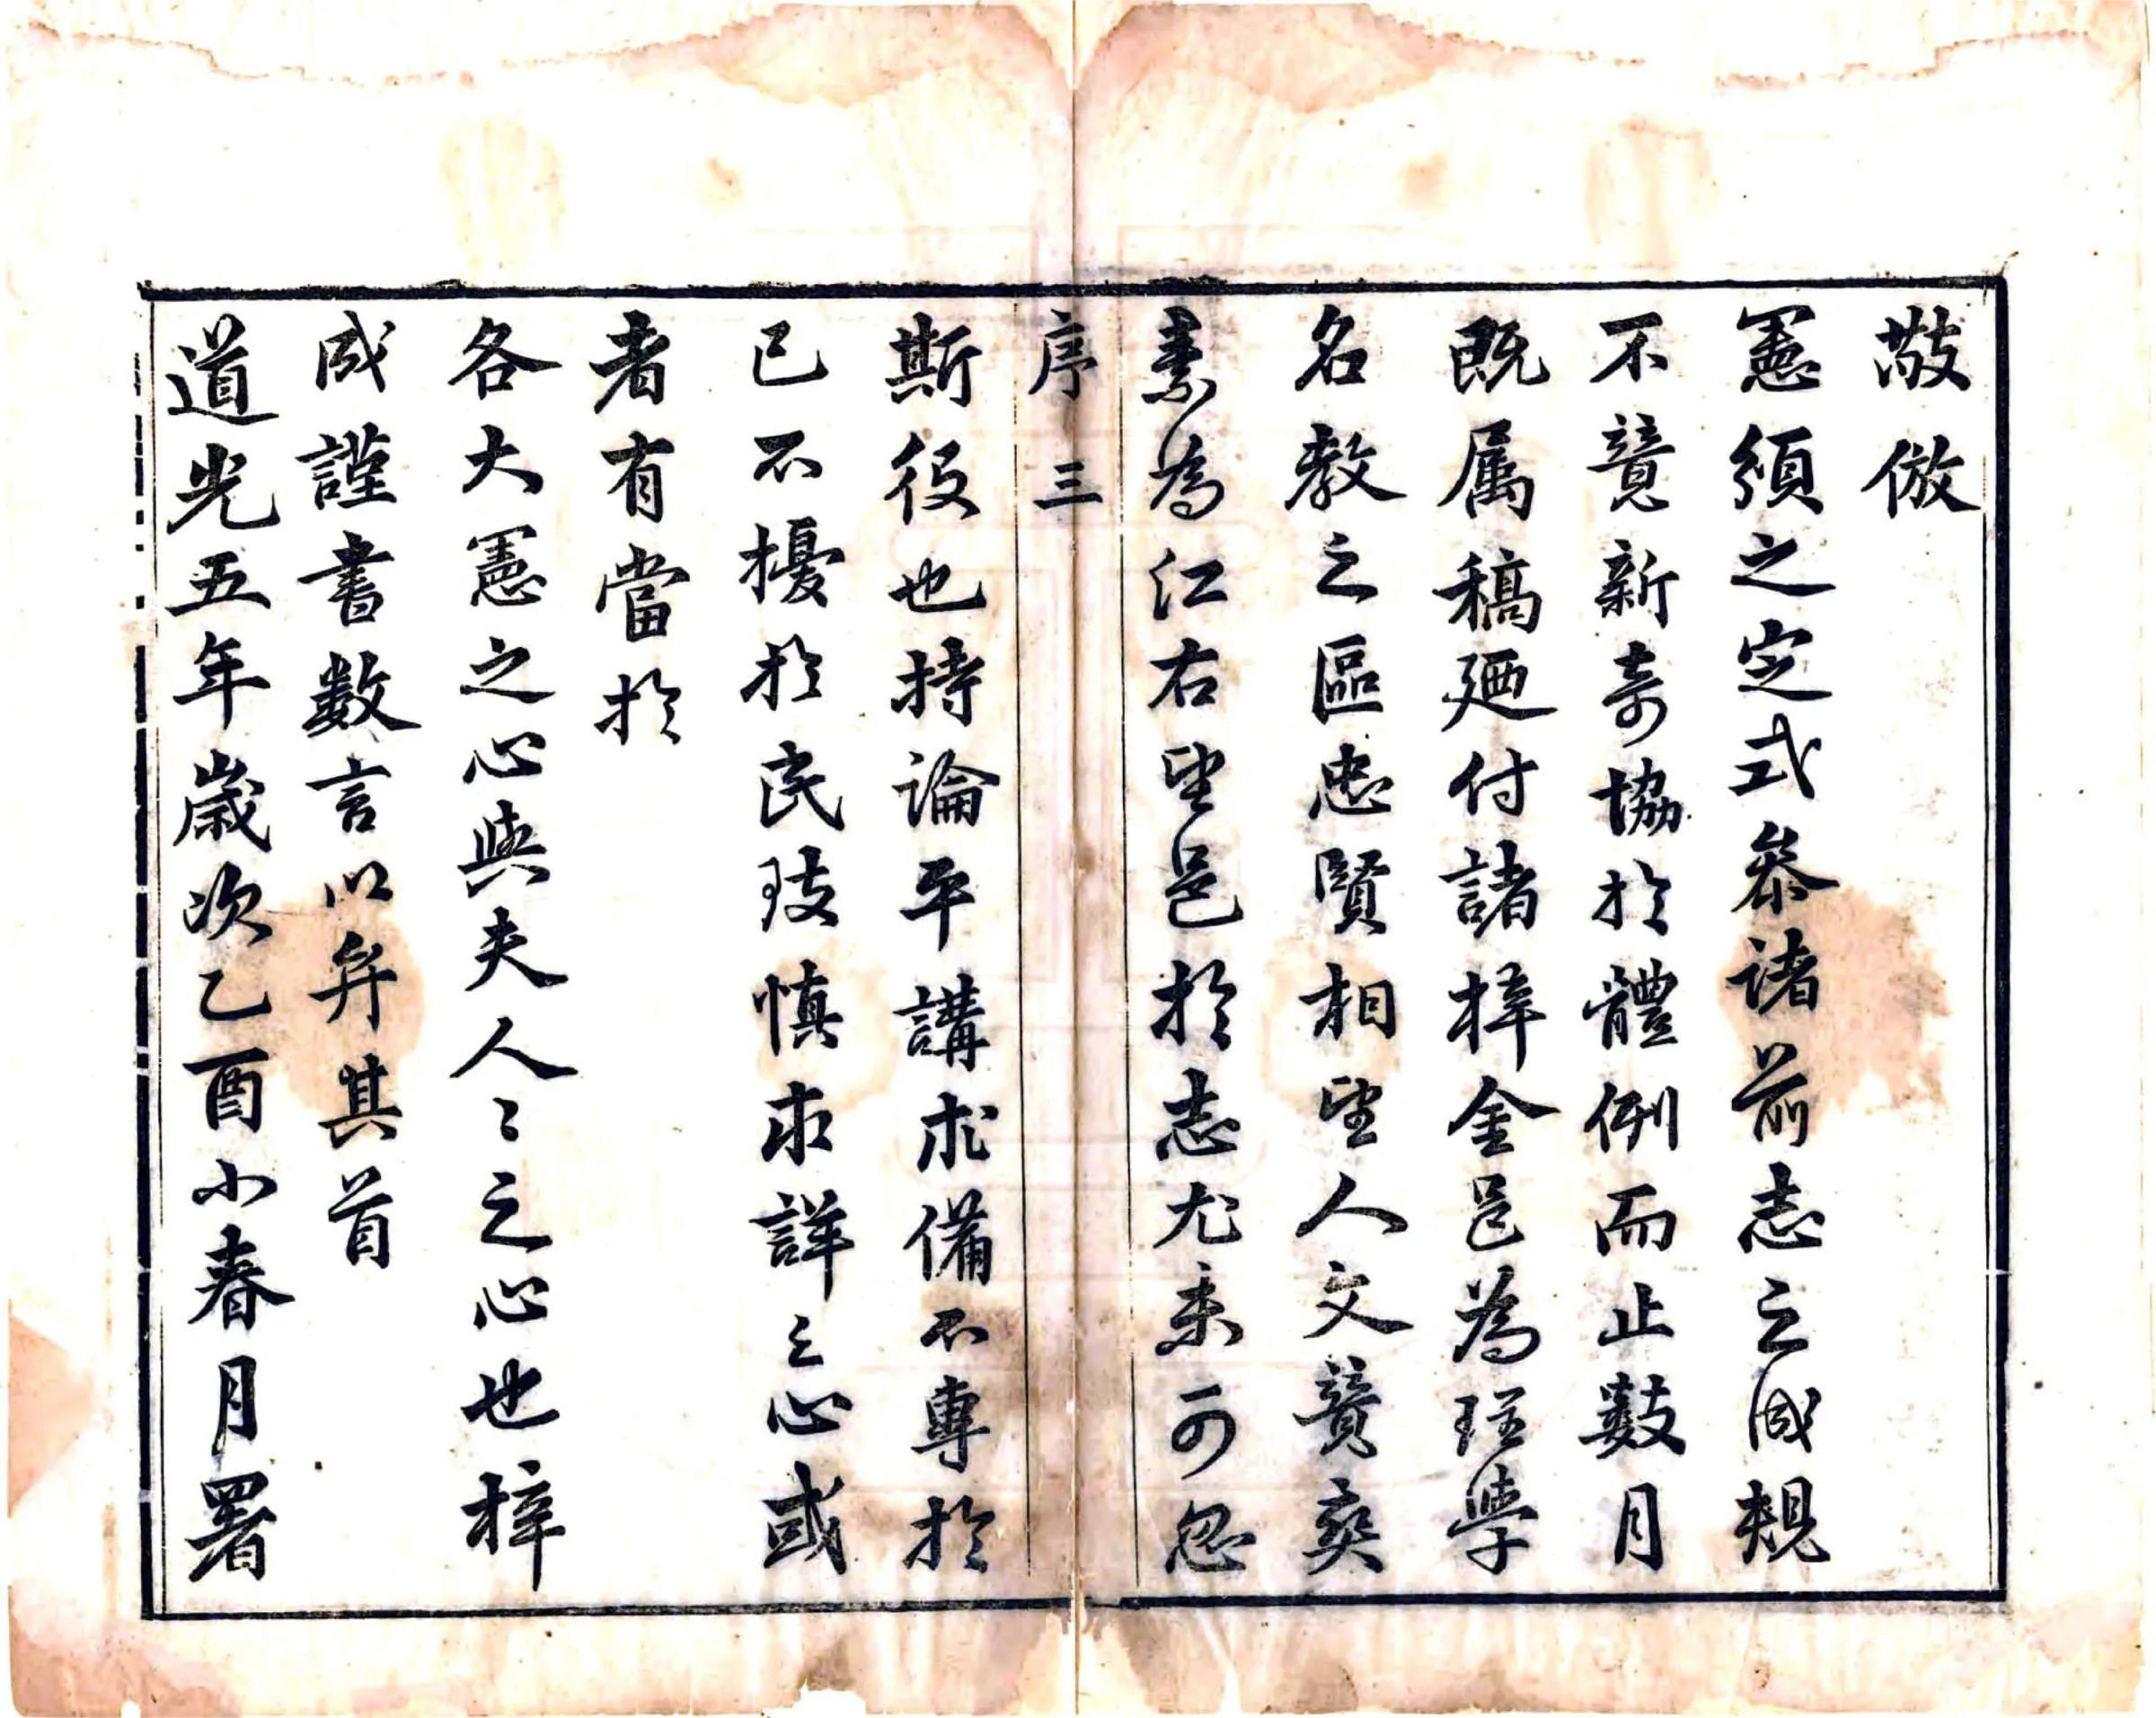 敬倣
憲頒之定式叅諸前志之成規
不竟新竒協於體例而止數月
既属稿廼付諸梓金邑為理學
名教之區忠賢相望人文贒奕
素為江右望邑於志尤未可忽
序 三
斯役也持論平講求備不專於
已不擾於民玆慎求詳之心或
者有當於
各大憲之心與夫人〻之心也梓
成謹書数言以弁其首
道光五年歲次乙酉小春月署